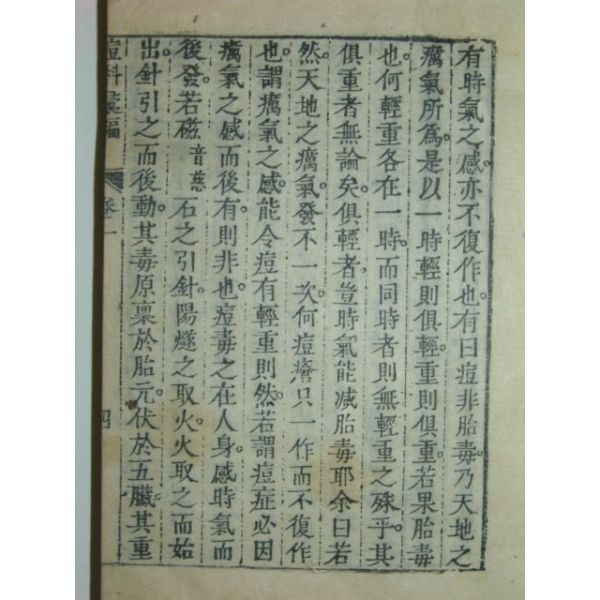 有時氣之感亦不復作也有曰痘非胎毒乃天地之
癘氣所為是以一時輕則俱輕重則俱重若果胎毒
也何輕重各在一時而同時者則無輕重之殊乎其
俱重者無論矣俱輕者豈時氣能减胎毒耶余曰若
然天地之癘氣發不一次何痘瘡只一作而不復作
也謂癘氣之感能令痘有輕重則然若謂痘症必因
癘氣之感而後有則非也痘毒之在人身感時氣而
後發若磁音慈石之引針陽燧之取火火取之而始
出針引之而後動其毒原稟於胎元伏於五臟其重
痘科彙編 卷一 四